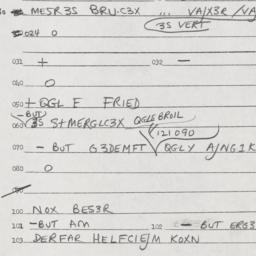 MESR3S BRU.C3X ... VA/X3R /VA
3S VERT
024 O
031 + 032 —
040 O
050 + QGL E FRIED
-BUT
060 3S S+MERGLC3X QGLSBROIL
121090
070 - BUT G3DEMFT QGLY A/NG1K
080 O
100 NOX BES3R
101 -BUT AM 102 - BUT ERG3
103 DERFAR HELFCIE/M KOXN